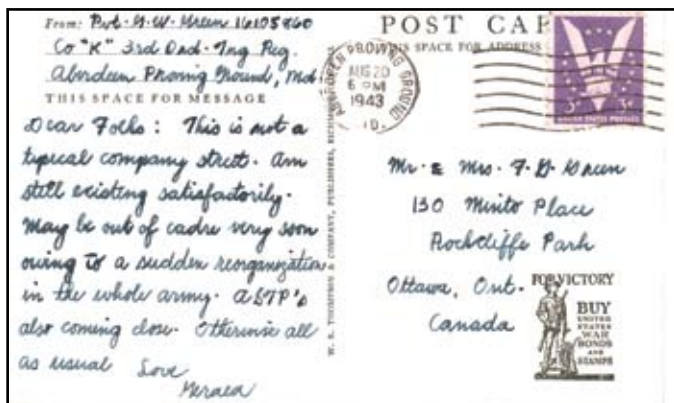 From: Pvt. G. W. Green 16105860
Co "K" 3rd Ord. Tng Reg.
Aberdeen Proving Ground, Md.
THIS SPACE FOR MESSAGE
Dear Folks: This is not a
typical company street. Am
still existing satisfactorily.
May be out of cadre very soon
owing to a sudden reorganization
in the whole army. ASTP's
also coming close. Otherwise all
as usual
Love
W. R. THOMPSON & COMPANY, PUBLISHERS, RICHMOND
POST CAR
THIS SPACE FOR ADDRESS
ABERDEEN PROVING GROUND
AUG 20
6 PM
1943
MD.
3¢ 3¢
UNITED STATES POSTAGE
Mr. & Mrs. F. G. Green
130 Minto Place
Rockcliffe Park
Ottawa, Ont.
Canada
FOR VICTORY
BUY
UNITED
STATES
WAR
BONDS
AND
STAMPS